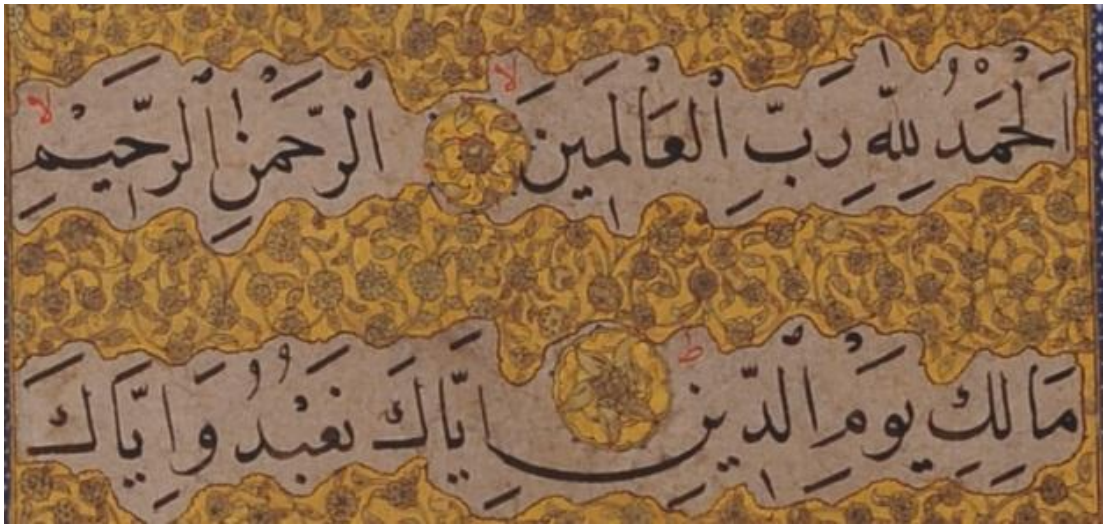 اَلْحَمْدُ لِلّٰهِ رَبِّ الْعَالَمِينَ لا اَلرَّحْمٰنِ الرَّحِيمِ لا
مَالِكِ يَوْمِ الدِّينِ ط اِيَّاكَ نَعْبُدُ وَاِيَّاكَ